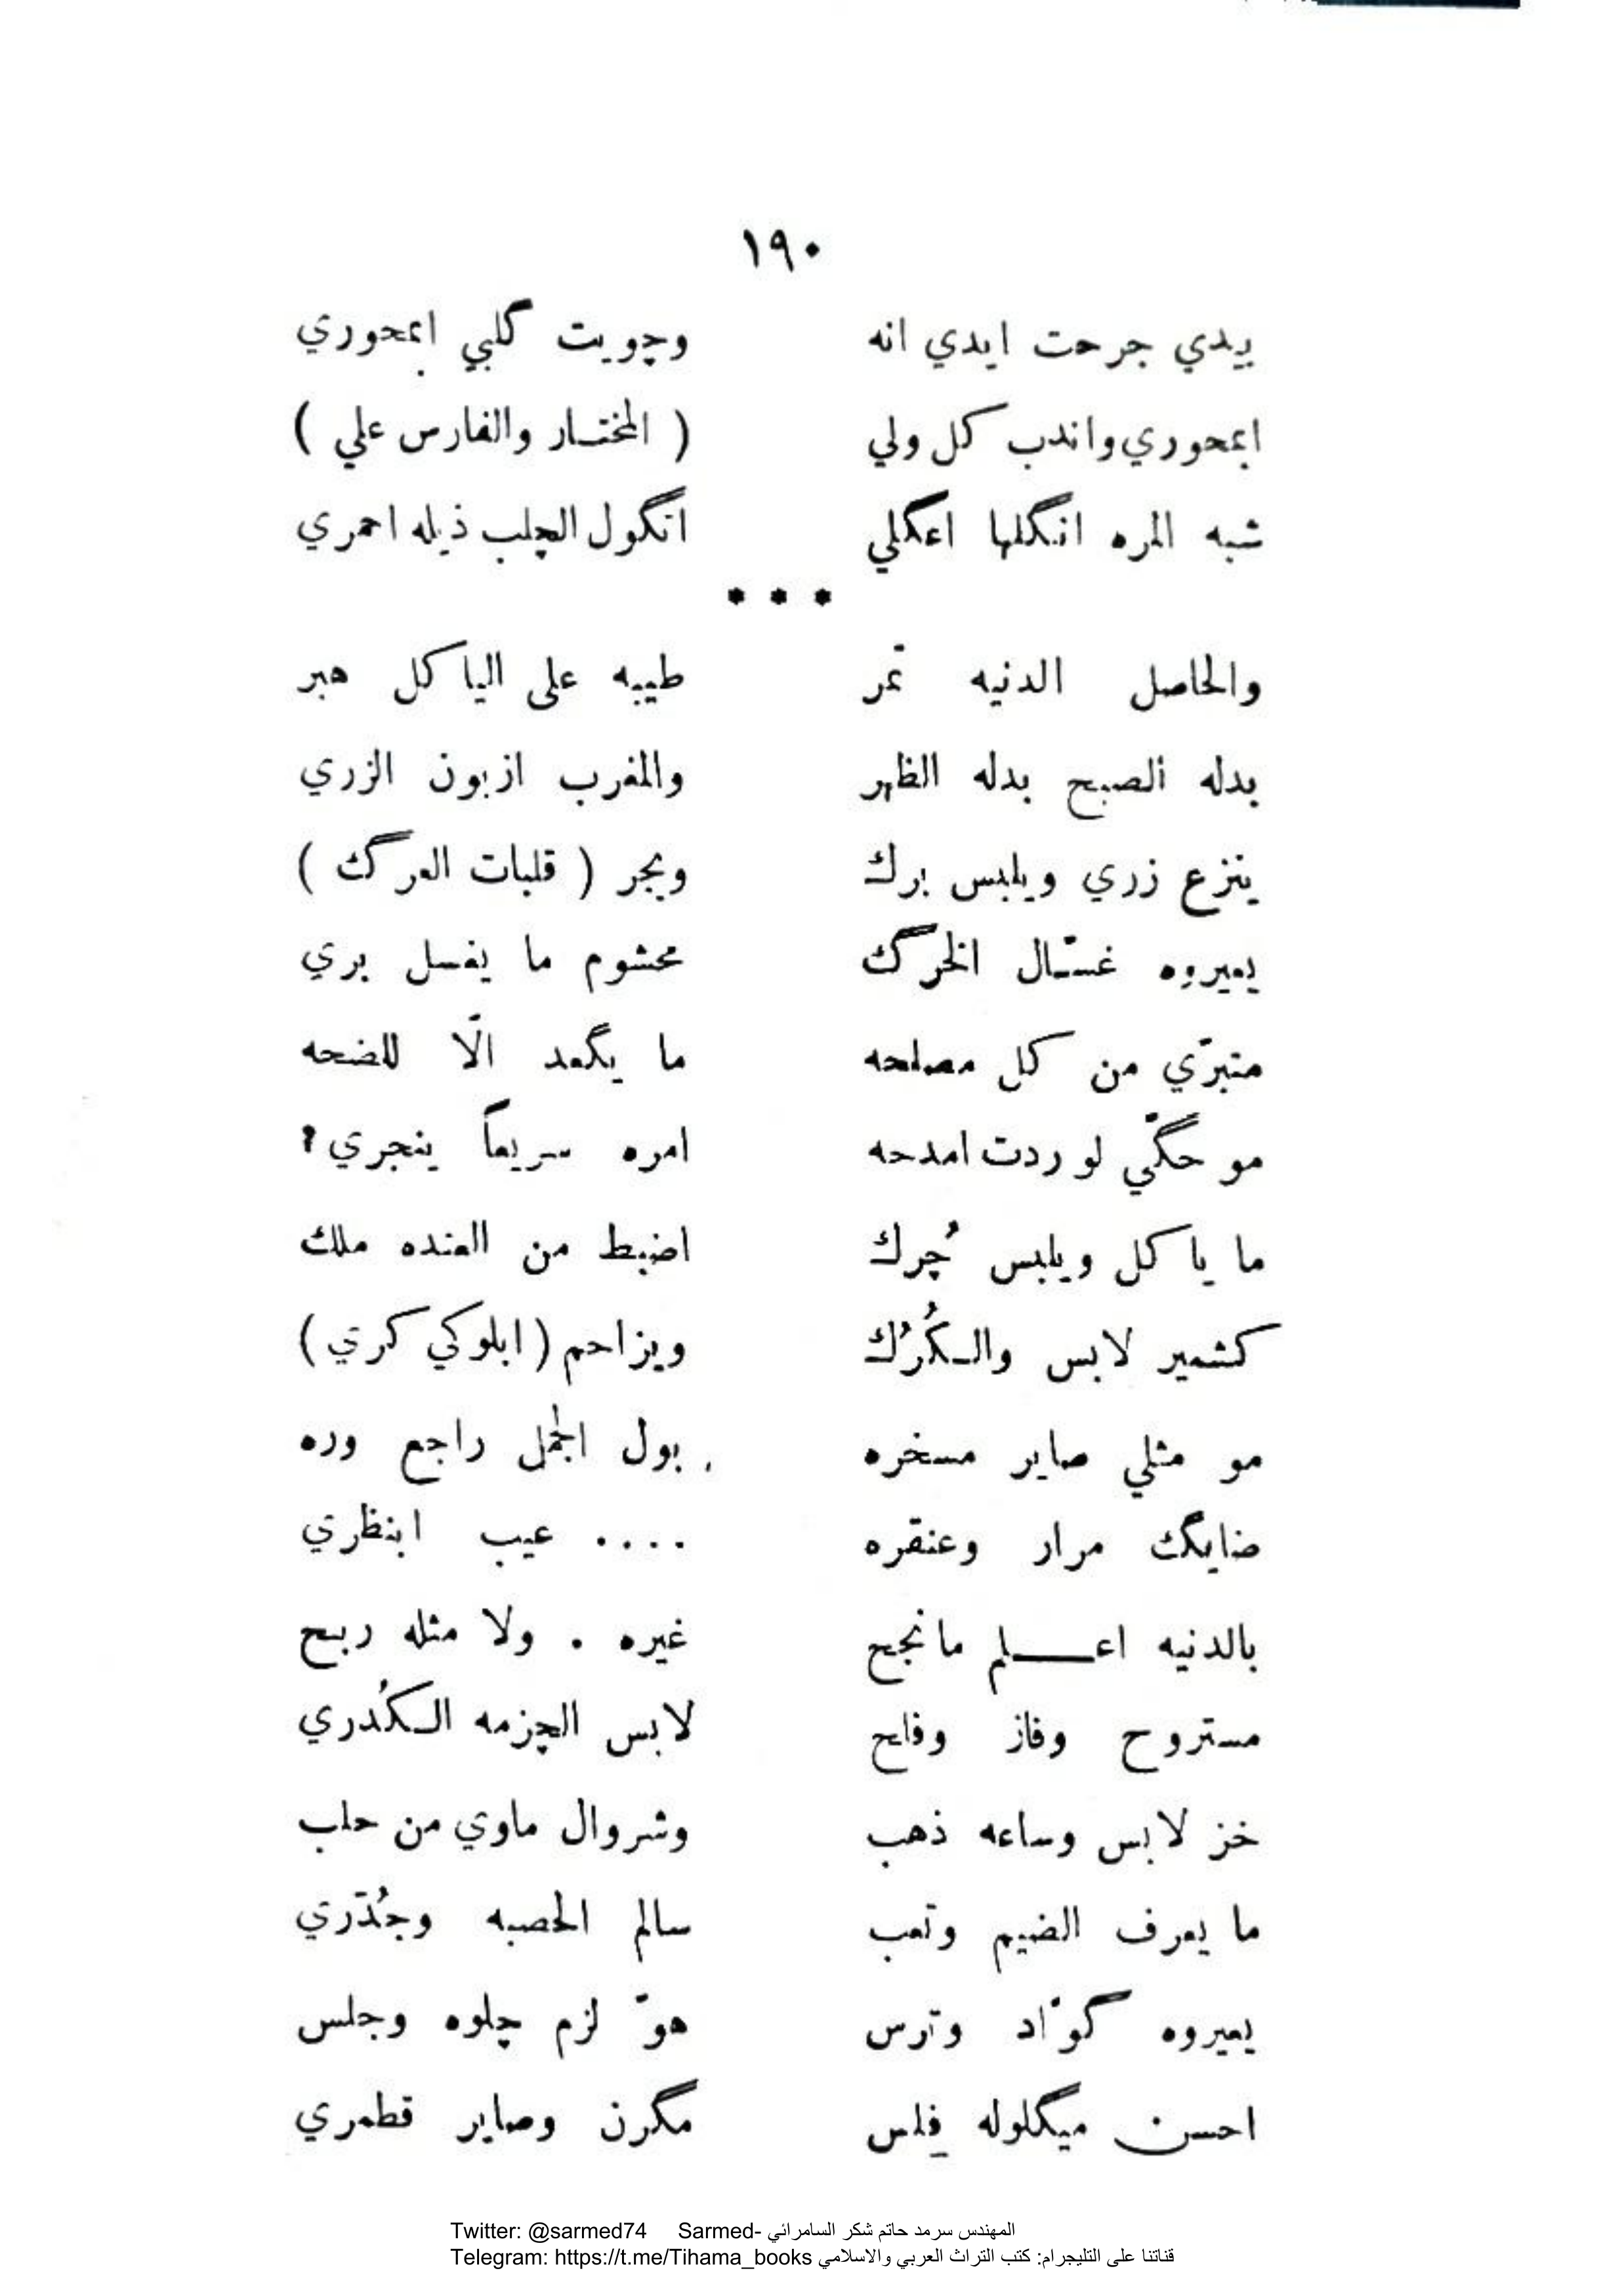 ١٩٠
بيدي جرحت ايدي انه وچويت گلبي ابمحوري
ابمحوري واندب كل ولي ( المختار والفارس علي )
شبه المره انگلها اعگلي اتگول الچلب ذيله احمري
* * *
والحاصل الدنيه تمّر طيبه على الياكل هبر
بدله الصبح بدله الظهر والمغرب ازبون الزري
ينزع زري ويلبس برك ويجر ( قلبات العرگ )
يعيروه غسّال الخرگ محشوم ما يغسل بري
متبرّي من كل مصلحه ما يگعد الّا للضحه
مو حگّي لو ردت امدحه امره سريعاً ينجري ؟
ما ياكل ويلبس چُرك اضبط من العنده ملك
كشمير لابس والكُرُك ويزاحم ( ابلوكي كري )
مو مثلي صاير مسخره بول الجمل راجع وره
ضايگ مرار وعنقره .... عيب ابنظري
بالدنيه اعلم ما نجح غيره . ولا مثله ربح
مستروح وفاز وفلح لابس الچزمه الكُدري
خز لابس وساعه ذهب وشروال ماوي من حلب
ما يعرف الضيم وتعب سالم الحصبه وجُدّري
يعيروه گوّاد وترس هوّ لزم چلوه وجلس
احسن ميگلوله فِلس مگرن وصاير قطمري
Twitter: @sarmed74 Sarmed- المهندس سرمد حاتم شكر السامرائي
Telegram: https://t.me/Tihama_books قناتنا على التليجرام: كتب التراث العربي والاسلامي